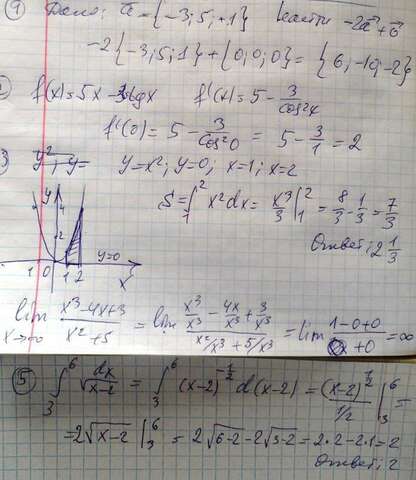 ① Дано: a⃗ = {-3; 5; 1} Найти -2a⃗ + 0⃗
-2{-3; 5; 1} + {0; 0; 0} = {6; -10; -2}
2 f(x) = 5x - 3tgx f'(x) = 5 - 3/cos²x
f'(0) = 5 - 3/cos²0 = 5 - 3/1 = 2
3 y = x²; y = 0; x = 1; x = 2
S = ∫₁² x²dx = x³/3 |₁² = 8/3 - 1/3 = 7/3
Ответ: 2 1/3
4
2
y=0
1 0 1 2 x
lim x→∞ (x³-4x+3)/(x²+5) = lim (x³/x³ - 4x/x³ + 3/x³)/(x²/x³ + 5/x³) = lim (1-0+0)/(0+0) = ∞
⑤ ∫₃⁶ dx/√(x-2) = ∫₃⁶ (x-2)^(-1/2) d(x-2) = (x-2)^(1/2)/(1/2) |₃⁶ =
= 2√(x-2) |₃⁶ = 2√(6-2) - 2√(3-2) = 2·2 - 2·1 = 2
Ответ: 2